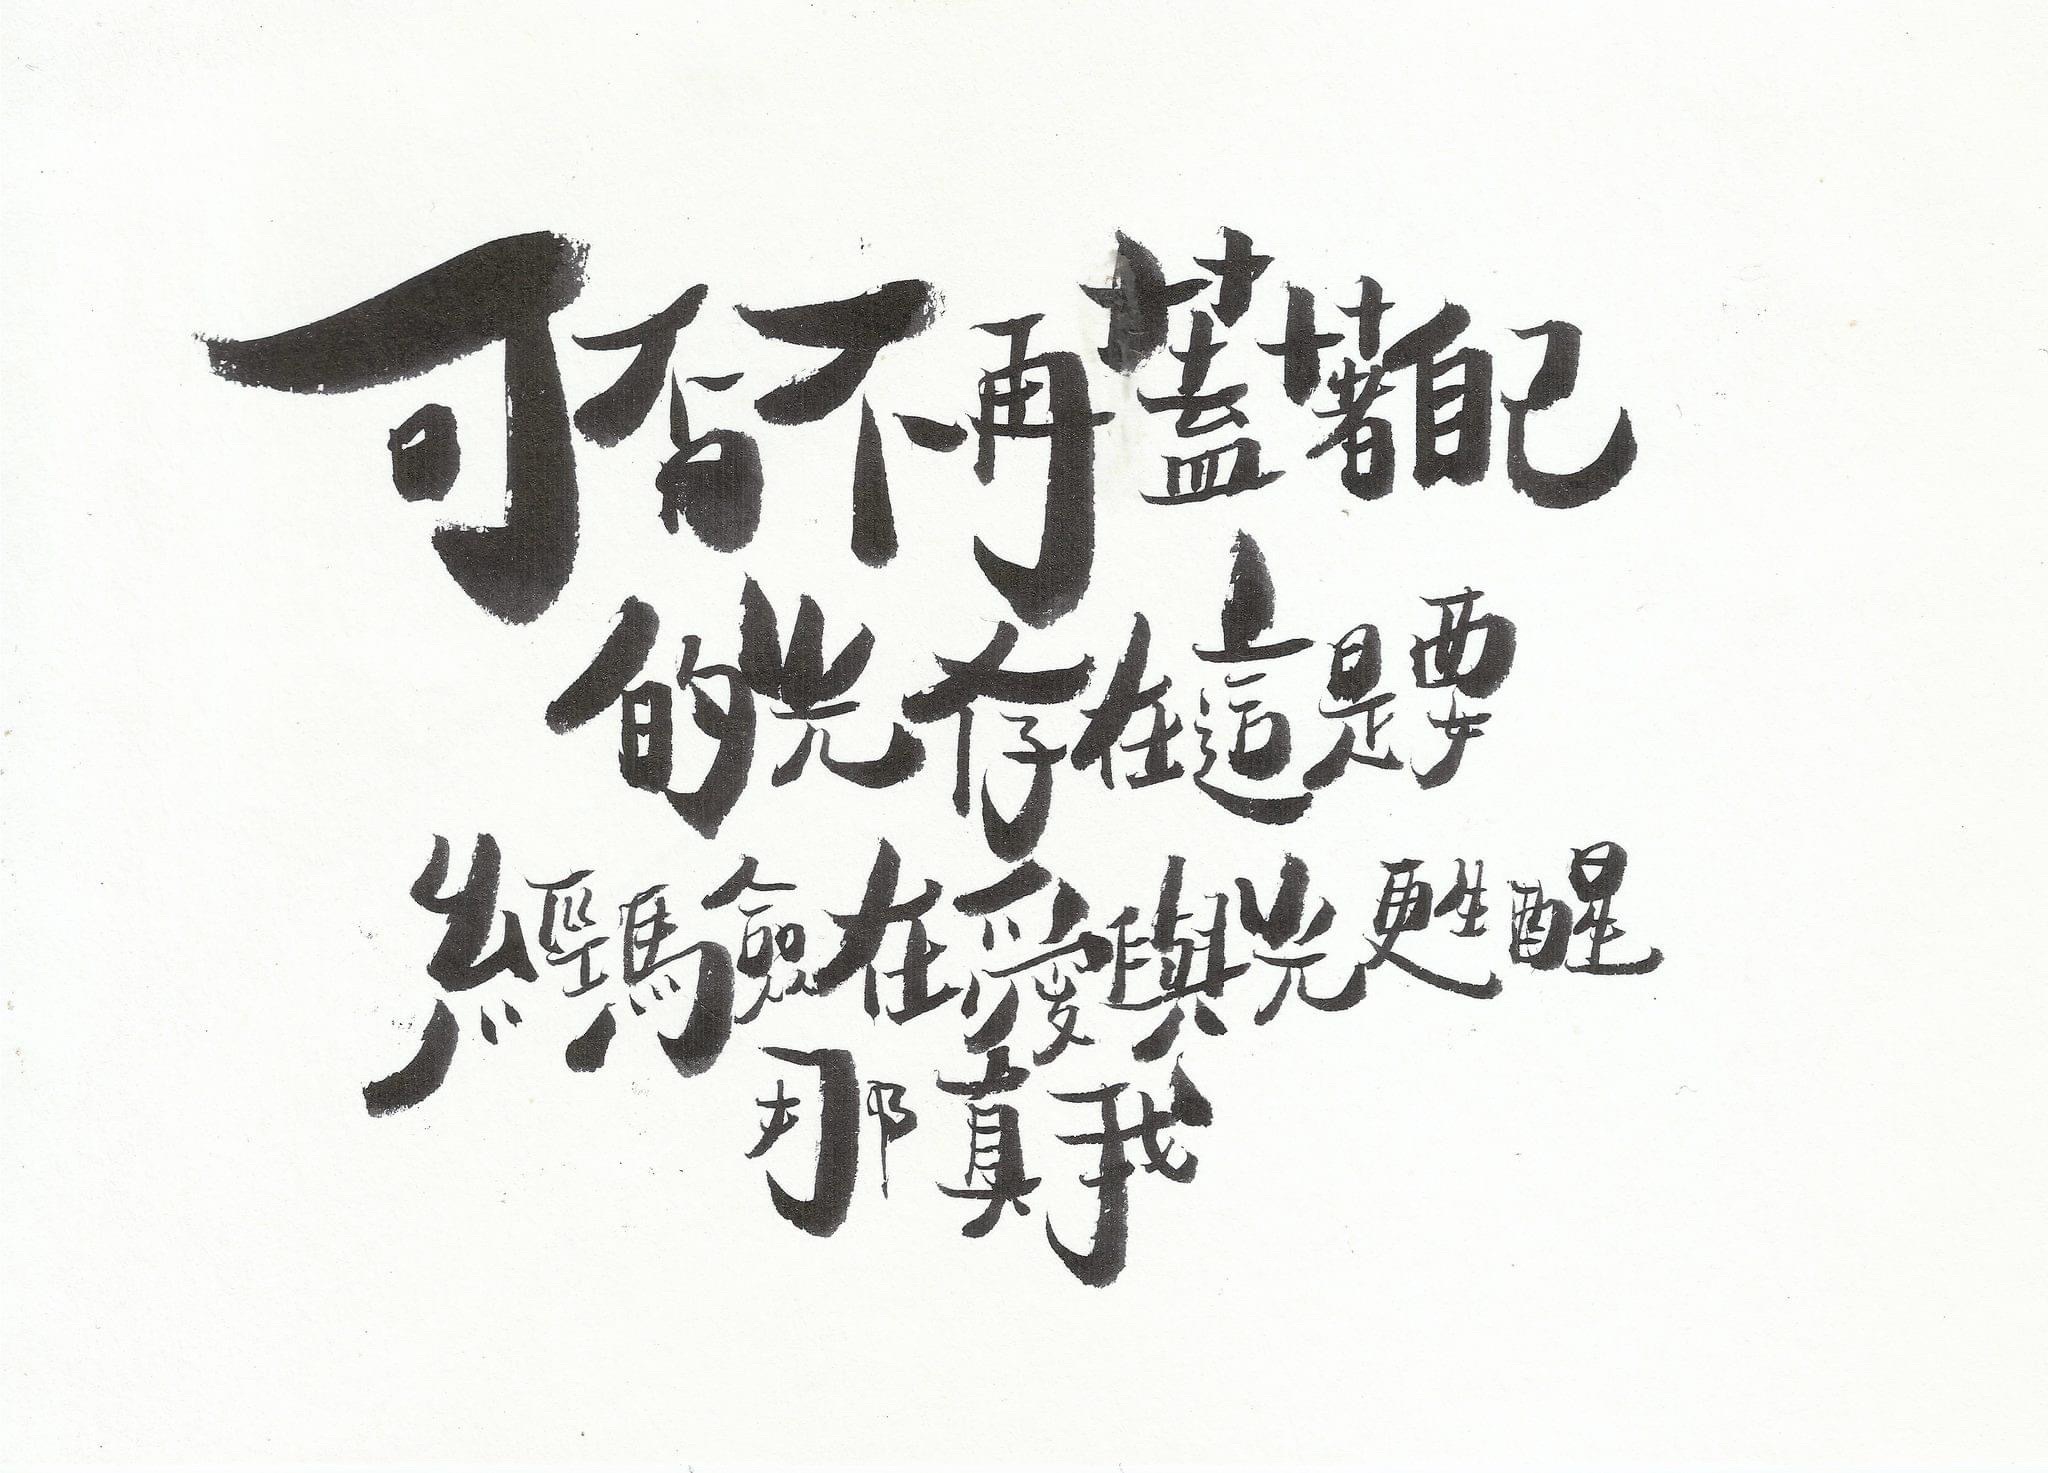 可否不再蓋著自己
的光存在這是要
經驗在愛與光更甦醒
那真我